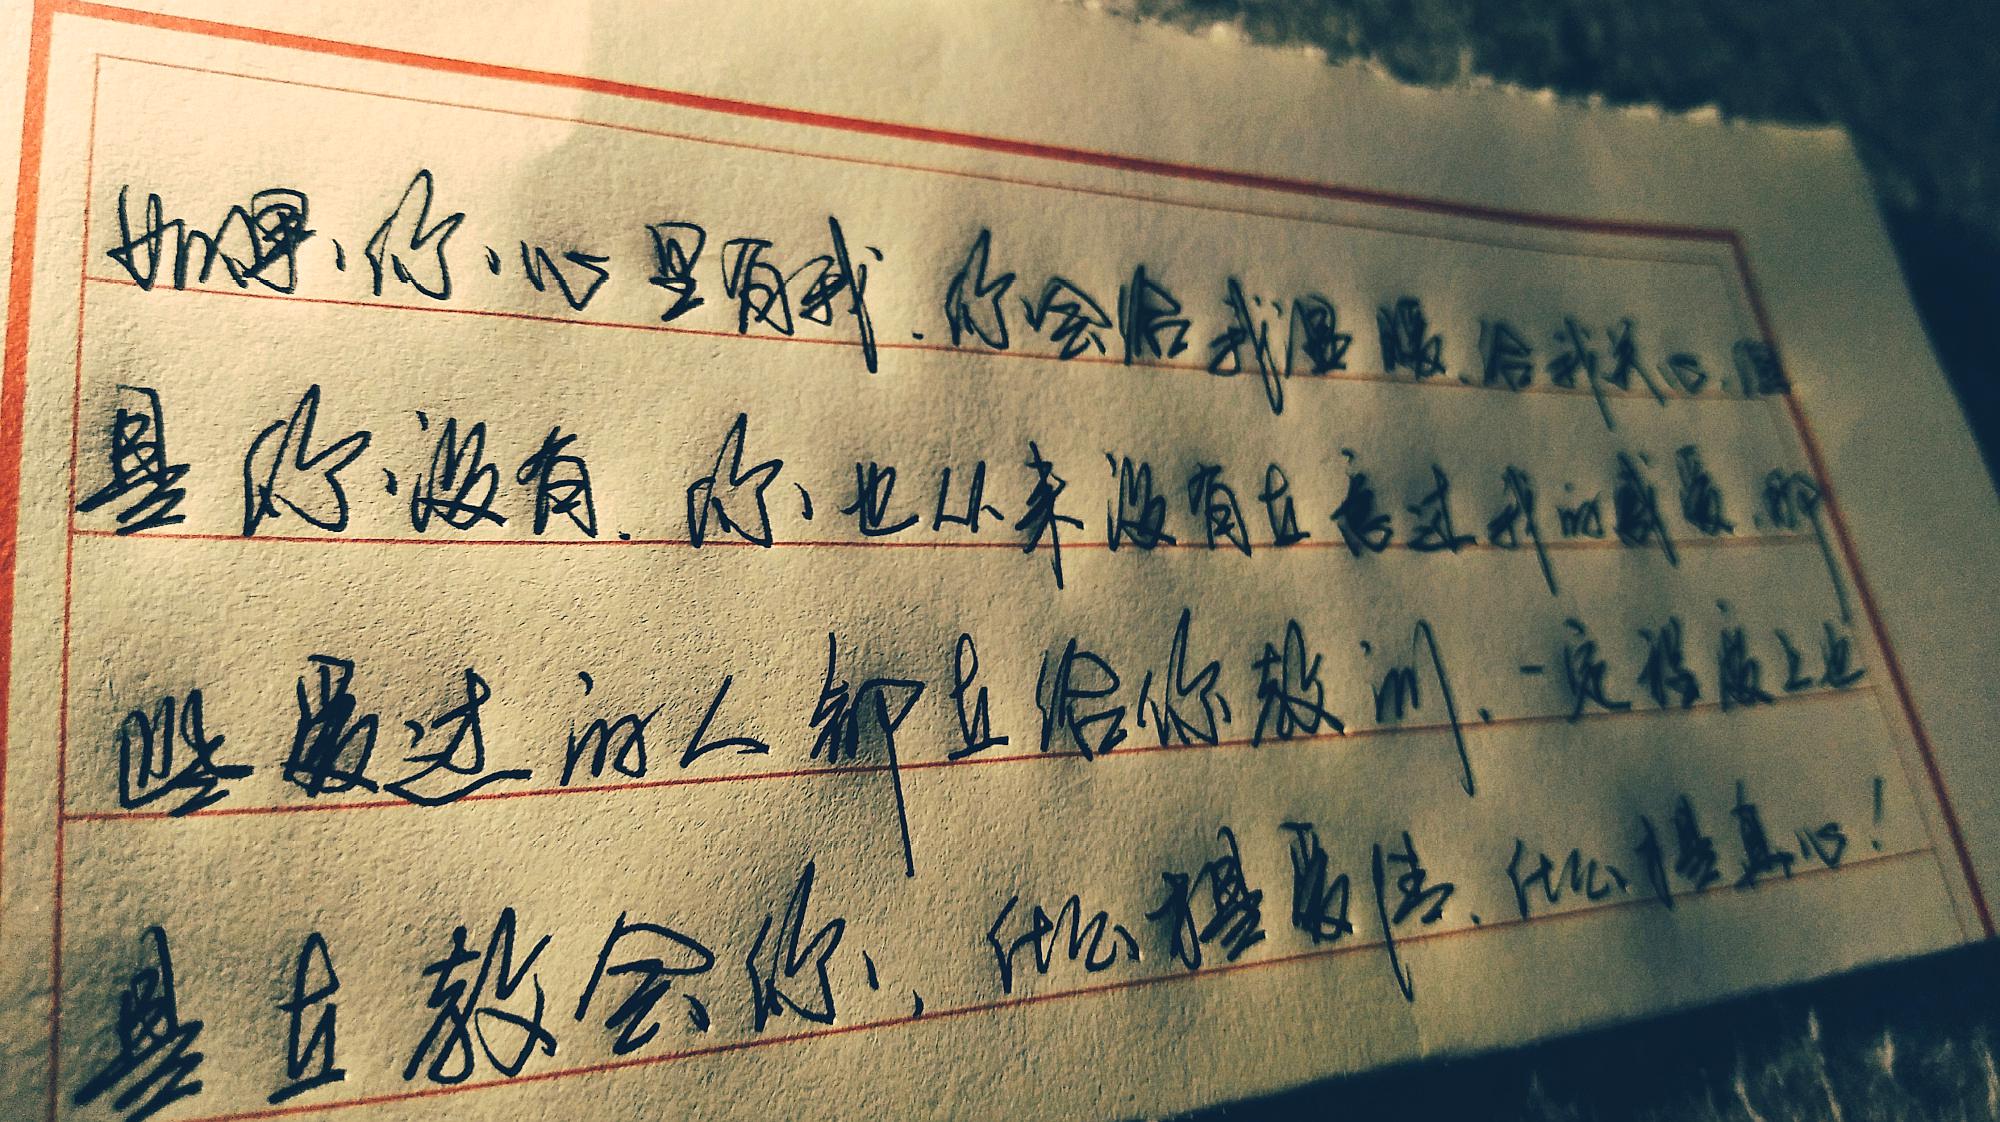 如果你心里有我.你会给我温暖.给我关心.但
是你没有.你也从来没有在意过我的感受.那
些爱过的人都在给你教训、一定程度上也
是在教会你,什么握爱情、什么握真心!